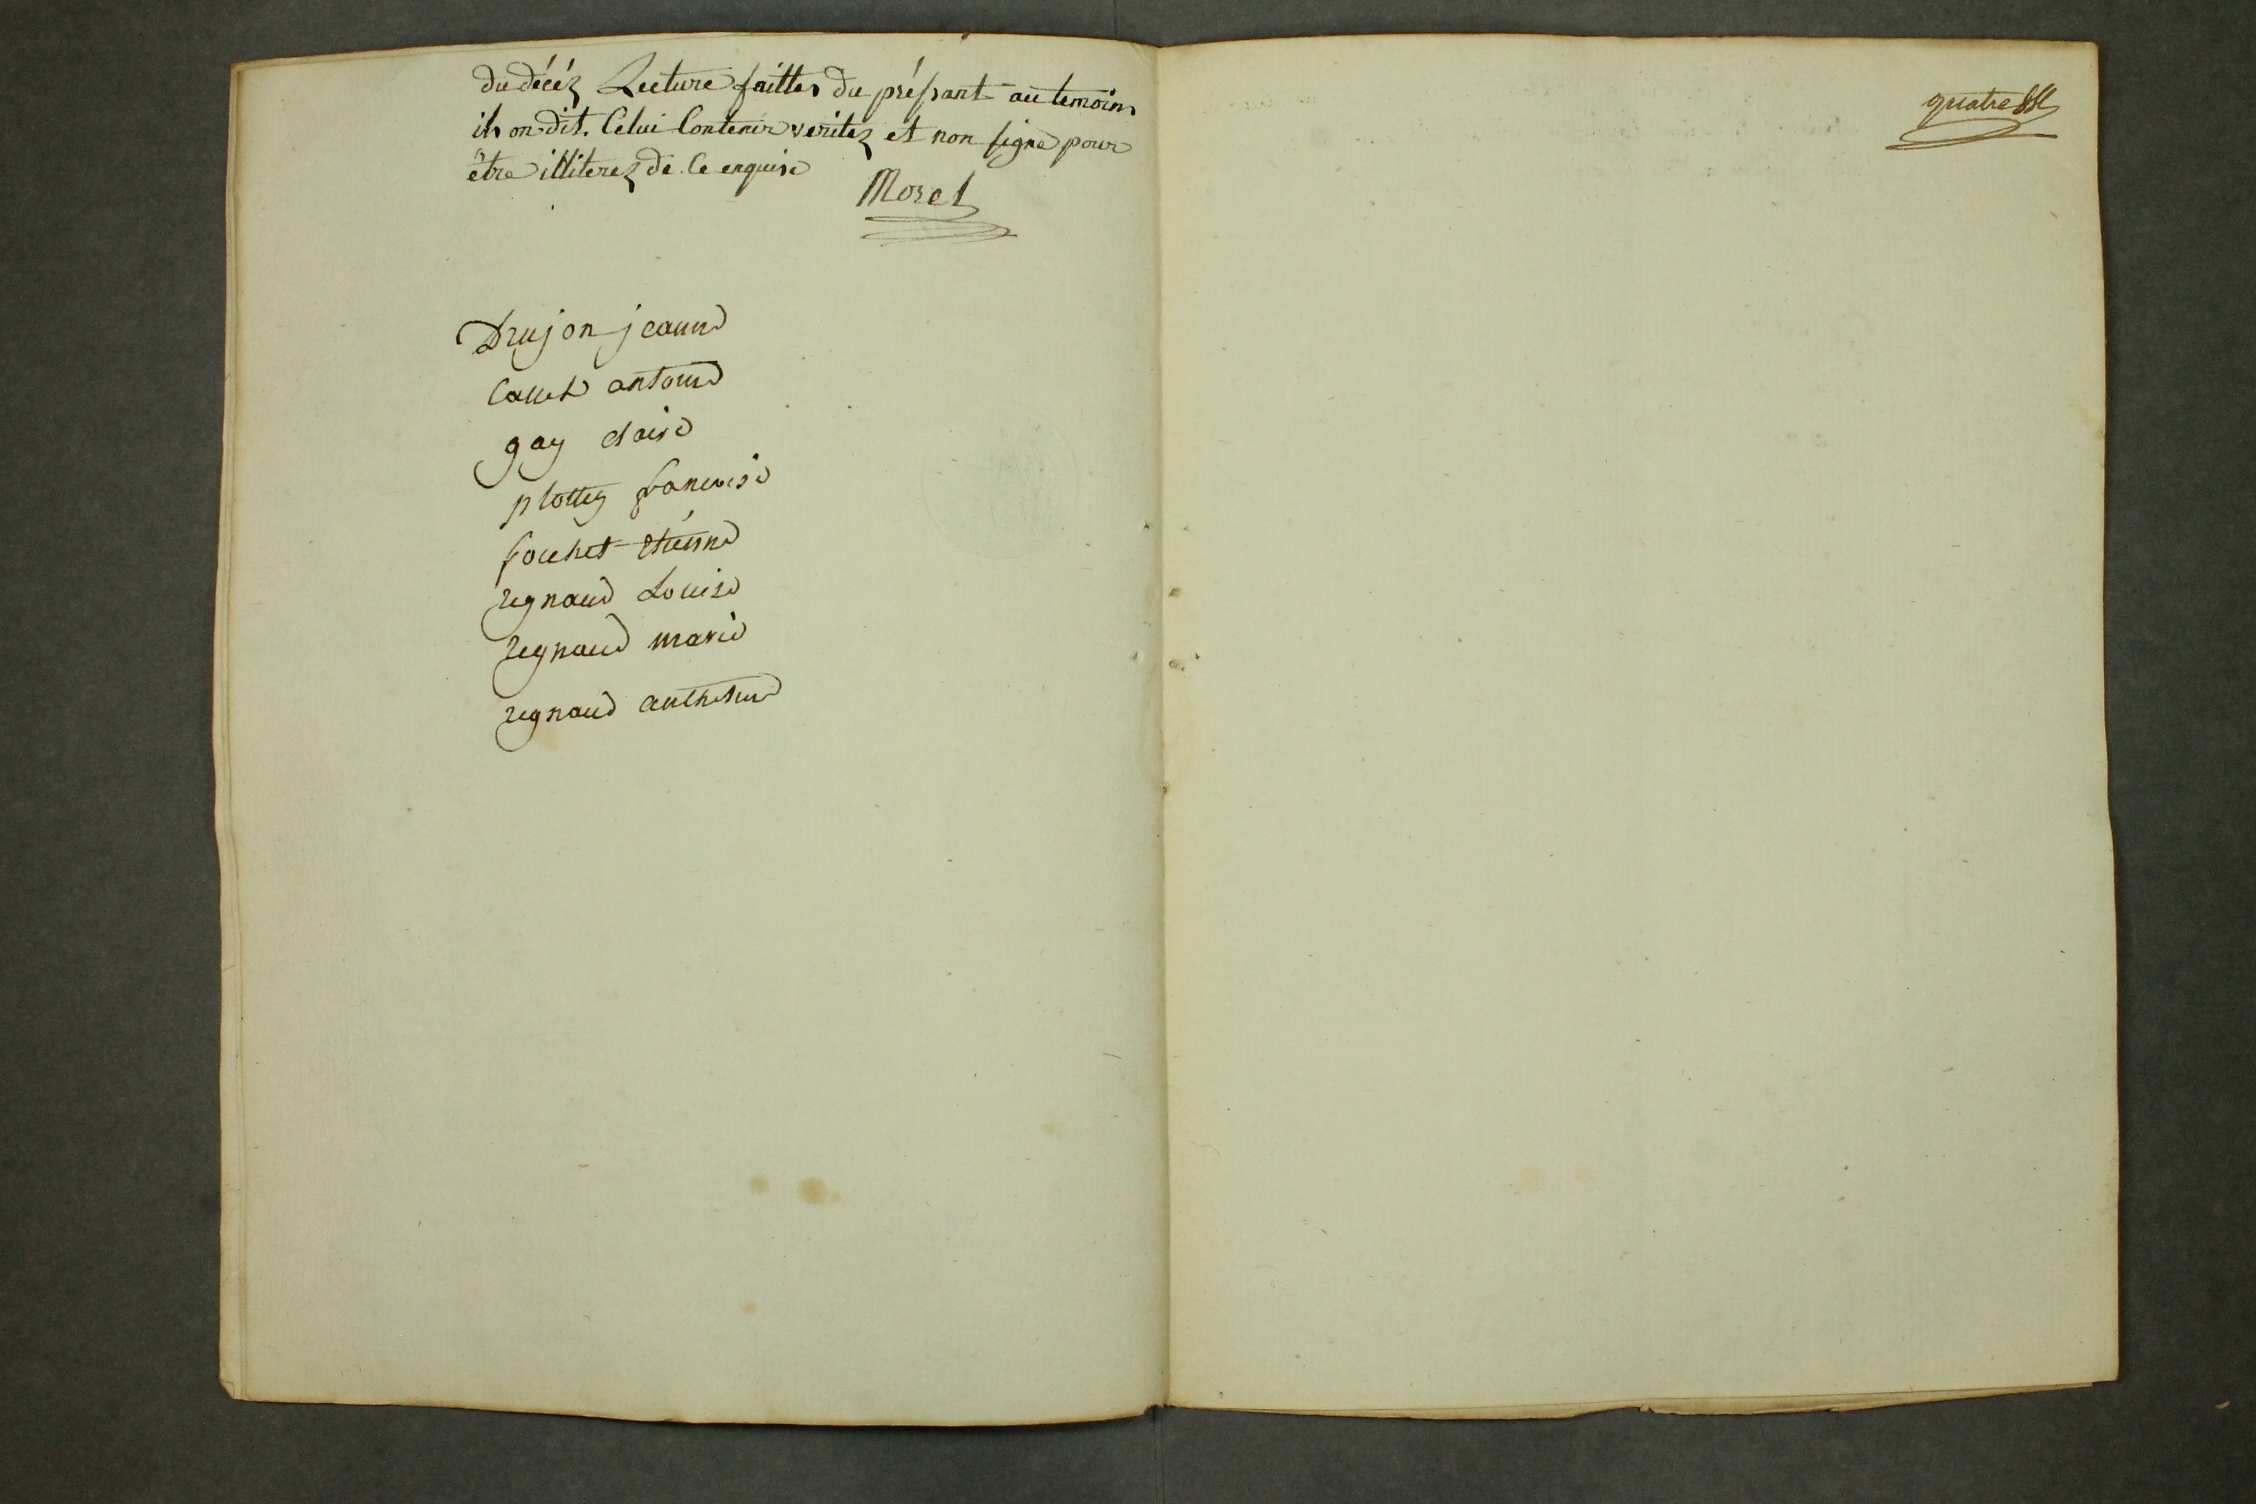 du décéz Lecture faittes du présant au temoins
ils on dit. Celui Contenir veritez et non signe pour
être illiterez de Ce enquise
Morel
Drujon jeanne
Cauet antoine
gay claire
plottey francoise
fouchet étienne
regnaud Louise
regnaud marie
regnaud
quatre